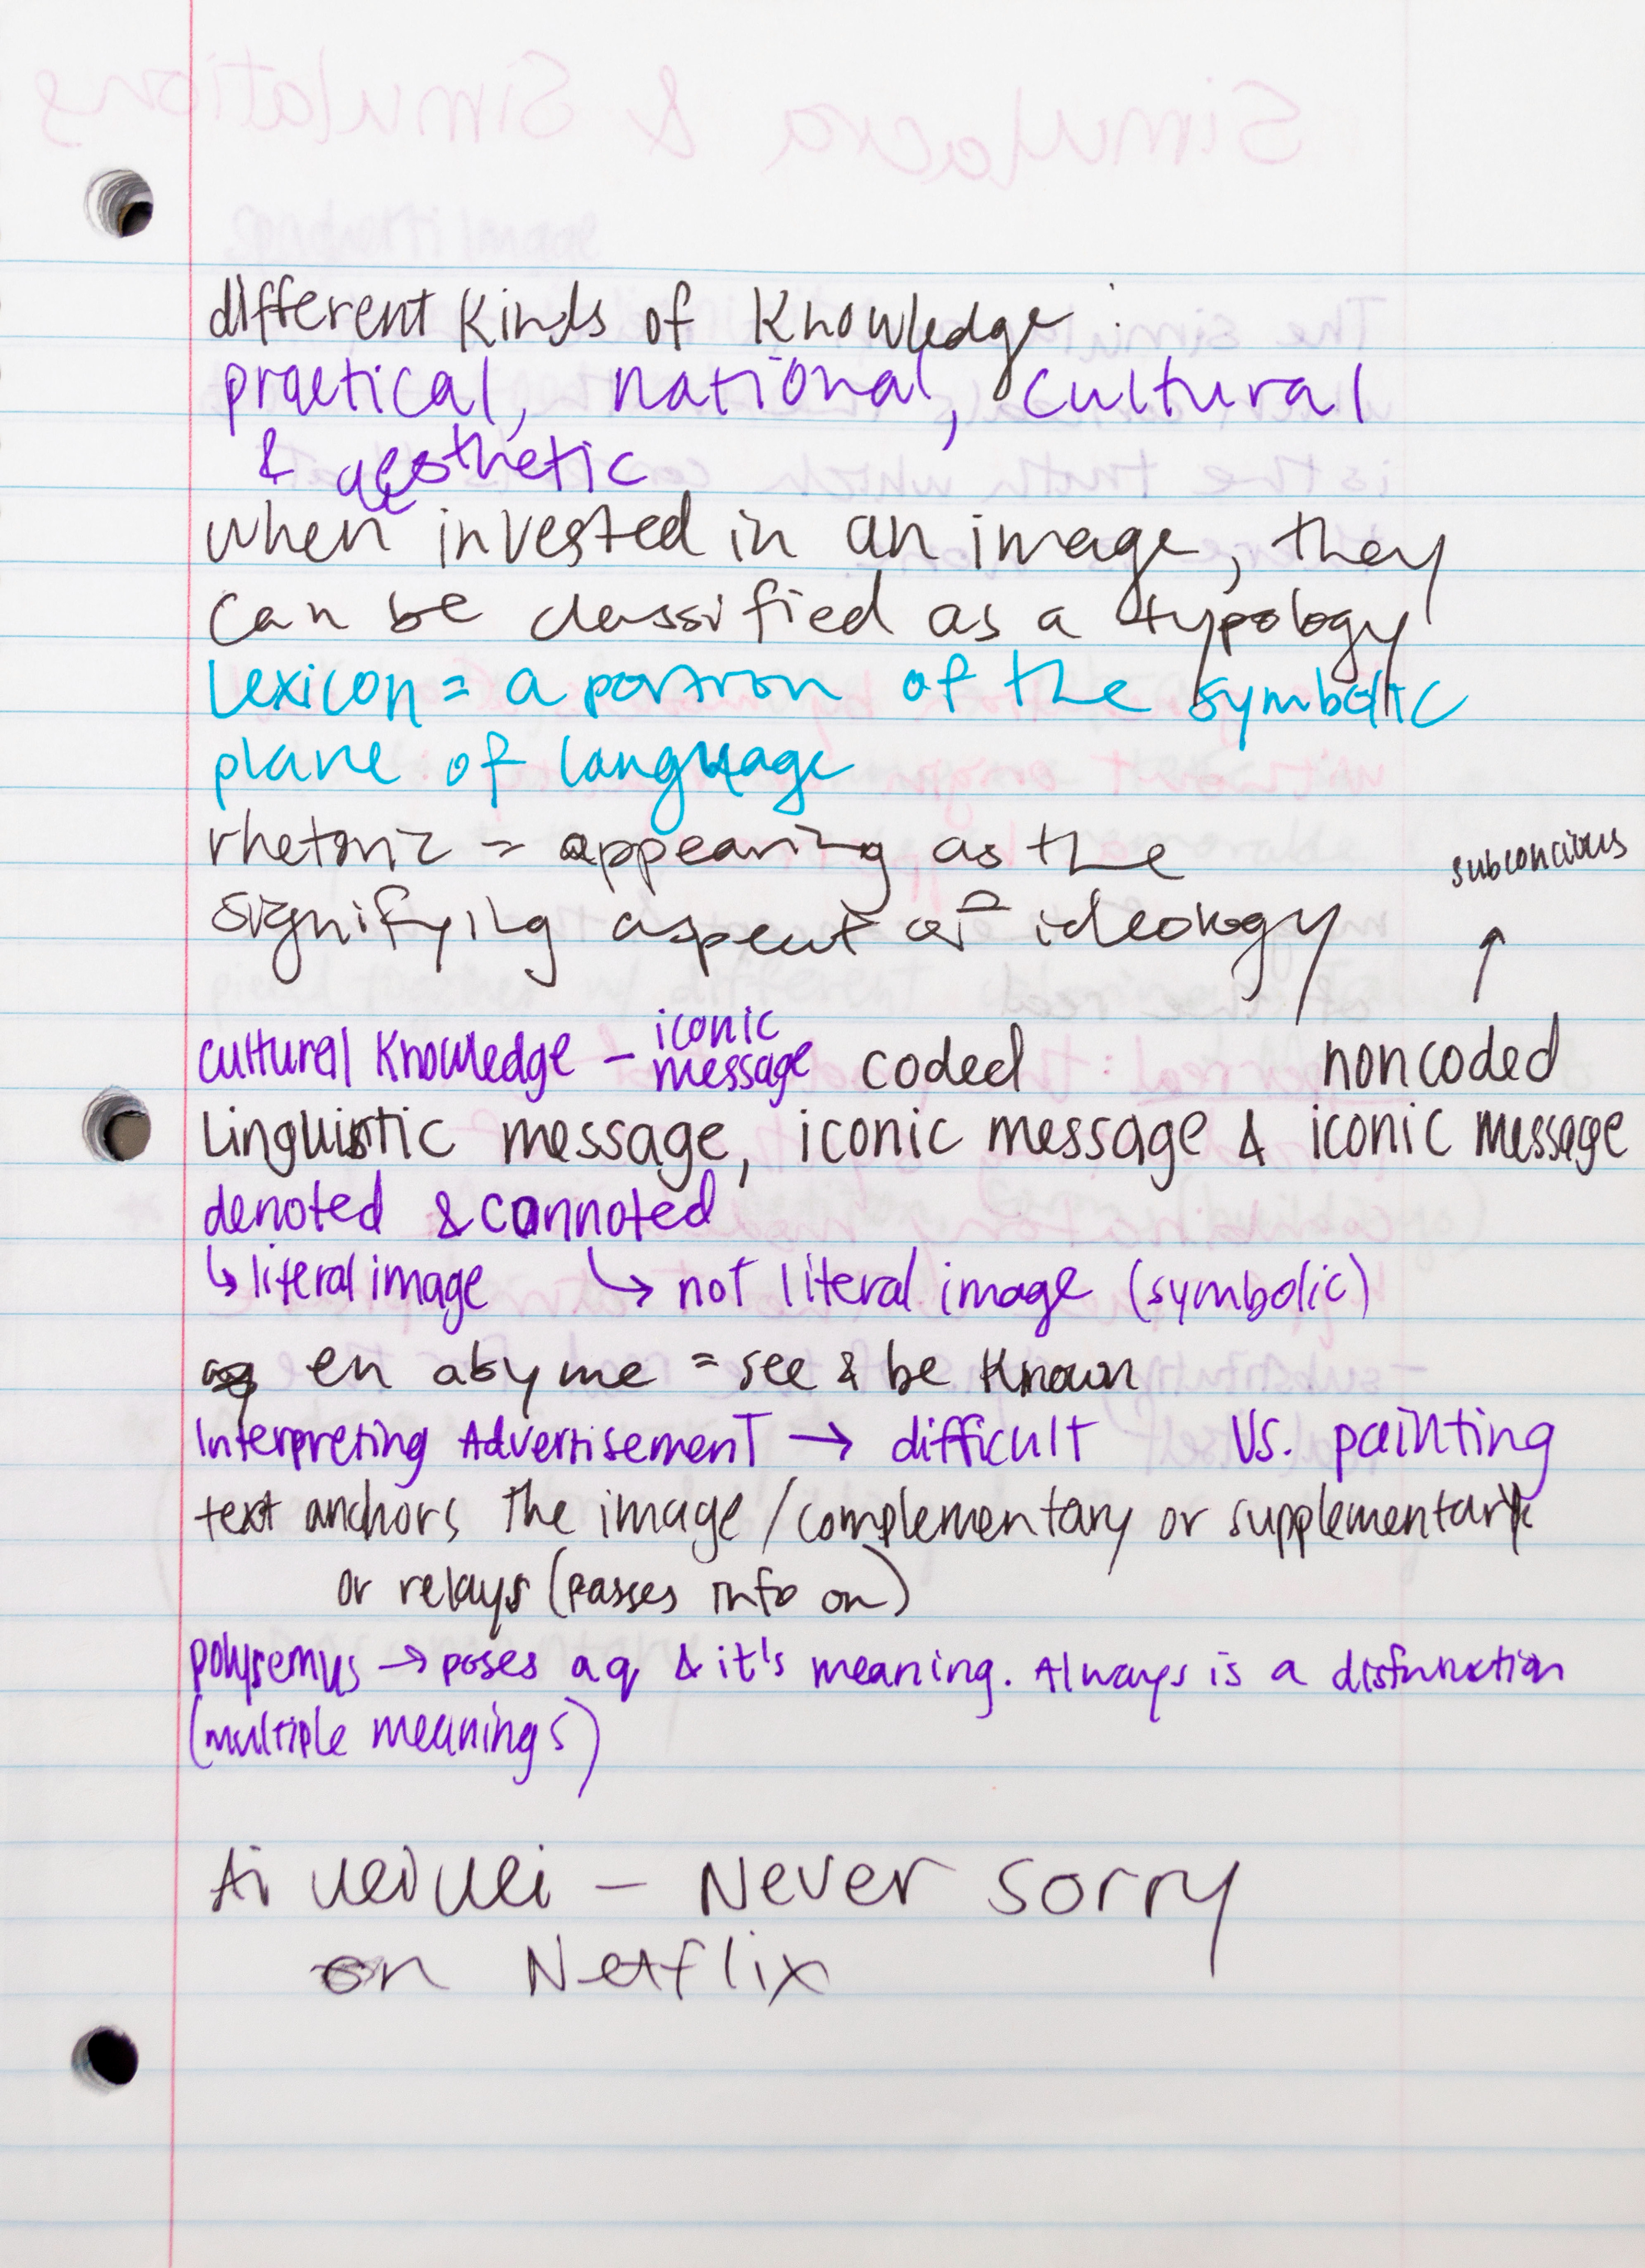 different kinds of knowledge:
practical, national, cultural
& aesthetic
when invested in an image, they
can be classified as a typology
Lexicon = a portion of the symbolic
plane of language
rhetoric = appearing as the
signifying aspect of ideology
subconcious
↑
cultural knowledge – iconic message coded noncoded
Linguistic message, iconic message & iconic message
denoted & connoted
↳ literal image ↳ not literal image (symbolic)
en abyme = see & be known
Interpreting Advertisement → difficult vs. painting
text anchors the image/complementary or supplementary
or relays (passes info on)
polysemus → poses a q & it's meaning. Always is a disfunction
(multiple meanings)
Ai weiwei – Never sorry
on Netflix
Simulacra & Simulations